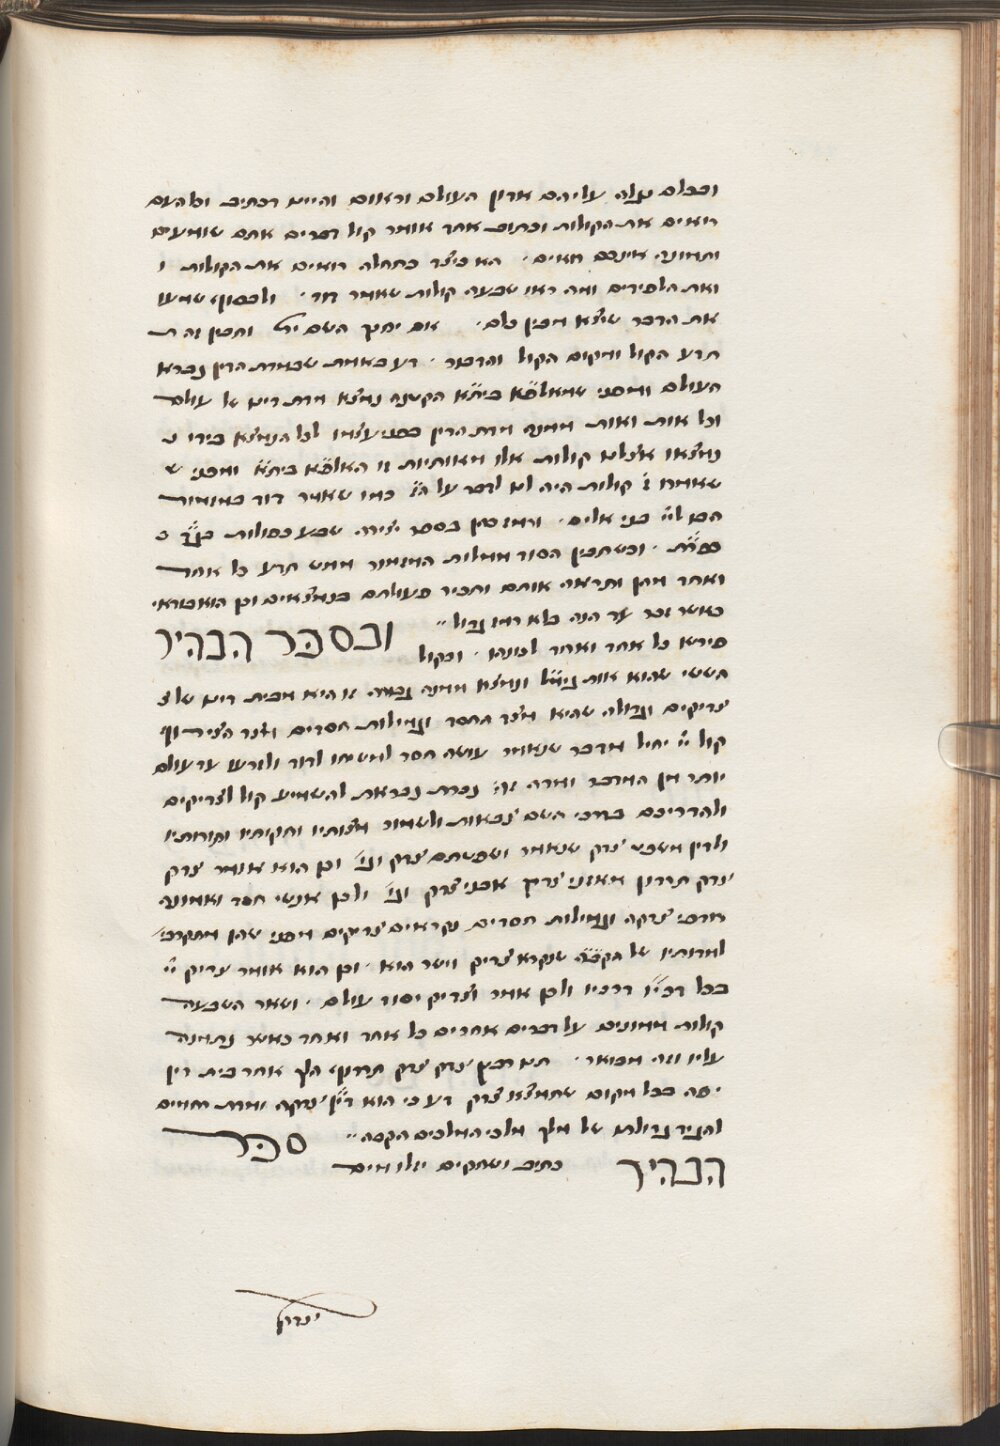 ובכלם נגלה עליהם אדון העולם וראוהו והיינו דכתיב וכל העם
רואים את הקולות וכתוב אחד אומר קול דברים אתם שומעים
ותמונה אינכם רואים. הא כיצד בתחלה רואים את הקולות ו
ואת הלפידים ומה ראו שבעה קולות שאמר דוד. ולבסוף שמעו
את הדבר שיצא מבין כלם. אם יחנך השם ית' ותבין זה ת
תדע הקול ומקום הקול והדבור. דע באמת שבמדת הדין נברא
העולם ומפני שמאלפ"א בית"א הקטנה נמצא מדת דינו של עולם
וכל אות ואות ממנה מדת הדין בפני עצמו לכל הנמצא בידי נ
נמצאו אצלנו קולות אלו מאותיות זו האלפ"א בית"א ומפני ש
שאמרו ז' קולות היה לנו לדבר על ה"ז כמו שאמר דוד במזמור
הבו לי"י בני אלים. ורמז בהן בספר יצירה שבע כפולות בג"ד כ
כפר"ת. וכשתבין הסוד ממלות המזמור ממש תדע כל אחד
ואחד מהן ותראה אותם ותכיר פעולתם בנמצאים וכן הוא בודאי
כאשר זכר עד הנה בלא רמז גדול׃ ובספר הבהיר
פירוש כל אחד ואחד לכונהו. ובקול
הששי שהוא אות ונמצא ממנה גבורה זו היא מבית דינו של צ
צדיקים וגדולה שהיא מצד החסד וגמילות חסדים
קול י"י יחיל מדבר שנאמר עושה חסד למשיחו לדוד ולזרעו עד עולם
יותר מן המדבר ומדה זה נברת נבראת להשמיע קול לצדיקים
ולהדריכם בדרכי השם צבאות ולשמור מצותיו וחקותיו ותורותיו
ולדין משפט צדק שנאמר ושפטתם צדק וגו' וכן הוא אומר צדק
צדק תרדוף מאזני צדק אבני צדק וגו' ולכן אנשי חסד ואמונה
רודפי צדקה וגמילות חסדים נקראים צדיקים מפני שהן מתקרבי'
למדותיו של הקב"ה שנקרא צדיק וישר הוא. וכן הוא אומר צדיק י"י
בכל דרכיו ולכן אומר וצדיק יסוד עולם. ושאר השבעה
קולות ממונים על דברים אחרים כל אחד ואחד כאשר נתמנה
עליו וזה מבואר. תנו רבנן צדק צדק תרדוף הלך אחר בית דין
יפה בכל מקום שתמצא צדק דע כי הוא צדקה ומדת רחמים
להגיד גדולתו של מלך מלכי המלכים הקבה׃ ספר
הבהיר כתיב ושחקים יזלו מים
יצדק